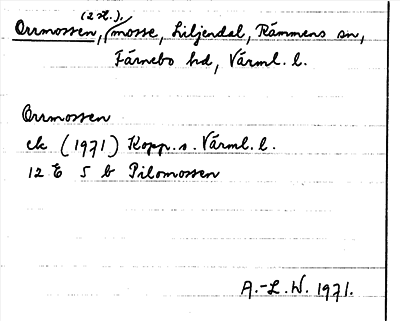 (2 st.).
Orrmossen, mosse, Liljendal, Rämmens sn,
Färnebo hd, Värml. l.
Orrmossen
ek (1971) Kopp.s. Värml. l.
12 E 5 b Pilomossen
A.-L.W. 1971.